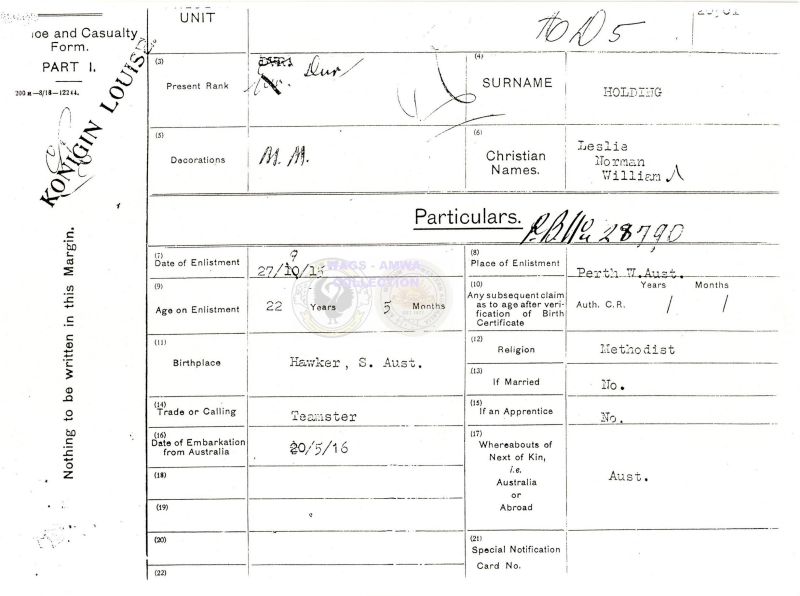 UNIT
oe and Casualty
Form.
PART I.
200 M—8/18—12244.
KONIGIN LOUISE.
Nothing to be written in this Margin.
(3)
Present Rank
Dvr
(4)
SURNAME
HOLDING
(5)
Decorations
M.M.
(6)
Christian
Names.
Leslie
Norman
William
Particulars.
28790
(7)
Date of Enlistment
9
27/10/15
(8)
Place of Enlistment
Perth W.Aust.
(9)
Age on Enlistment
22 Years 5 Months
(10)
Any subsequent claim
as to age after veri-
fication of Birth
Certificate
Years Months
Auth. C.R. / /
(11)
Birthplace
Hawker, S. Aust.
(12)
Religion
Methodist
(13)
If Married
No.
(14)
Trade or Calling
Teamster
(15)
If an Apprentice
No.
(16)
Date of Embarkation
from Australia
20/5/16
(17)
Whereabouts of
Next of Kin,
i.e.
Australia
or
Abroad
Aust.
(18)
(19)
(20)
(21)
Special Notification
Card No.
(22)
WAGS - AMWA
COLLECTION